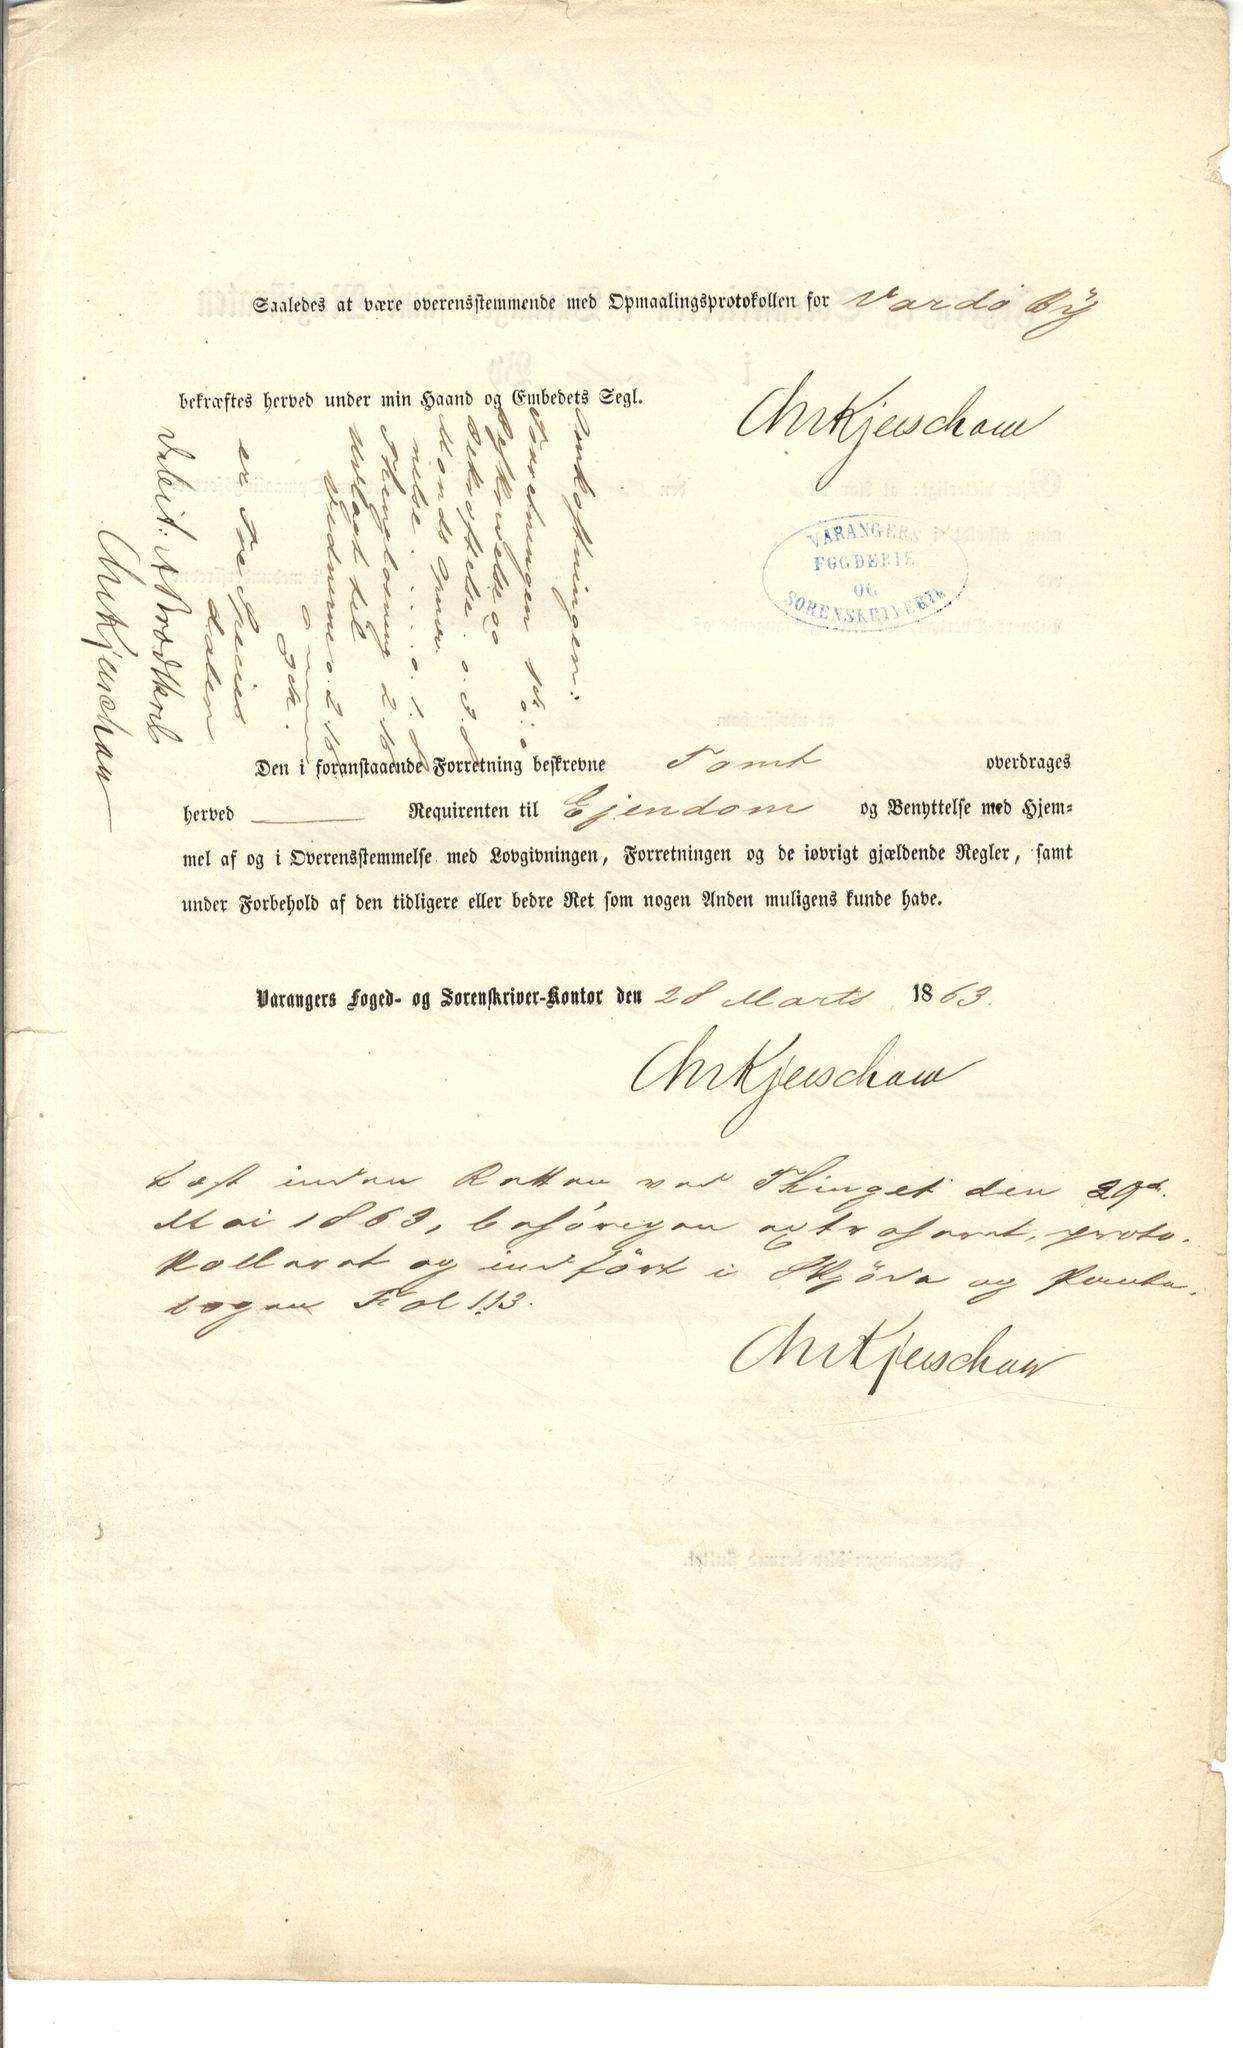 Saaledes at være overensstemmende med Opmaalingsprotokollen for Vardö Bÿ
bekræftes herved under min Haand og Embedets Segl.
Chr Kjerschow
VARANGERS
FOGDERIE
OG
SORENSKRIVERIE
Omkostningen:
Forretningen
Beskrivelse og
Bekræftelse . o. 3. 8
Mændsopnæv
nelse . . . . o. 1. 8
Thinglæsning 2. 16
Udlagt til
Vidnerne o. 2. 16
er Tre Species
daler
Valeit: A Brodtkorb
Chr Kjerschow
Den i foranstaaende Forretning beskrevne Tomt overdrages
herved ——— Requirenten til Ejendom og Benyttelse med Hjem-
mel af og i Overensstemmelse med Lovgivningen, Forretningen og de iøvrigt gjældende Regler, samt
under Forbehold af den tidligere eller bedre Ret som nogen Anden muligens kunde have.
Varangers Foged- og Sorenskriver-Kontor den 28 Marts 1863.
Chr Kjerschow
Læst inden Retten ved Thinget den 29d.
Mai 1863, behörigen extraheret, proto-
kolleret og indfört i Skjöde og Pante-
bogen Fol 113.
Chr Kjerschow